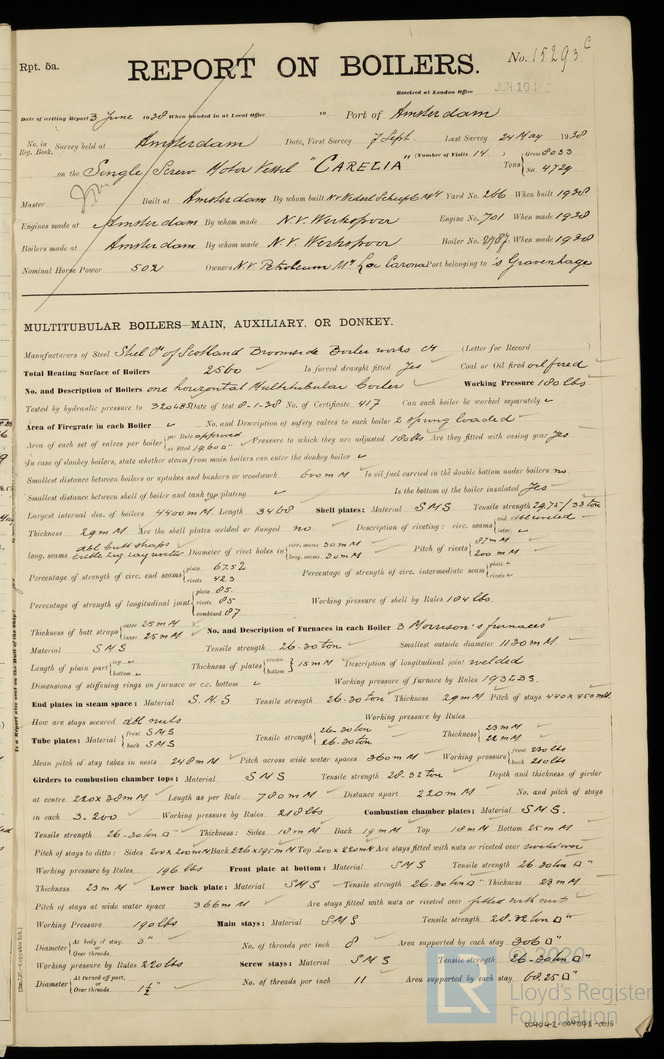 Rpt. 5a.
REPORT ON BOILERS.
No. 15293 c
Received at London Office JUN 10
Date of writing Report 3 June 1938 When handed in at Local Office 19 Port of Amsterdam
No. in Reg. Book. Survey held at Amsterdam Date, First Survey 7 Sept. Last Survey 24 May 1938
(Number of Visits 14.)
on the Single Screw Motor Vessel "CARELIA" Tons Gross 8033 Net 4729
Master Built at Amsterdam By whom built Yard No. 266 When built 1938
Engines made at Amsterdam By whom made N.V. Werkspoor Engine No. 701 When made 1938
Boilers made at Amsterdam By whom made N.V. Werkspoor Boiler No. When made 1938
Nominal Horse Power 502 Owners N.V. Petroleum My La Corona Port belonging to 's Gravenhage
MULTITUBULAR BOILERS—MAIN, AUXILIARY, OR DONKEY.
Manufacturers of Steel Steel Co of Scotland (Letter for Record )
Total Heating Surface of Boilers 2560 Is forced draught fitted Yes Coal or Oil fired oil fired
No. and Description of Boilers one horizontal Multitubular boiler Working Pressure 180 lbs
Tested by hydraulic pressure to 320 lbs Date of test 8-1-38 No. of Certificate 417 Can each boiler be worked separately
Area of Firegrate in each Boiler No. and Description of safety valves to each boiler 2 spring loaded
Area of each set of valves per boiler per Rule approved as fitted Pressure to which they are adjusted 180 lbs Are they fitted with easing gear Yes
In case of donkey boilers, state whether steam from main boilers can enter the donkey boiler
Smallest distance between boilers or uptakes and bunkers or woodwork 600 mM Is oil fuel carried in the double bottom under boilers no
Smallest distance between shell of boiler and tank top plating Is the bottom of the boiler insulated Yes
Largest internal dia. of boilers 4400 mM Length 3468 Shell plates: Material SMS Tensile strength 29.75/33 ton
Thickness 29 mM Are the shell plates welded or flanged no Description of riveting: circ. seams end dbl riveted inter.
long. seams Diameter of rivet holes in circ. seams 30 mM long. seams 30 mM Pitch of rivets 87 mM 200 mM
Percentage of strength of circ. end seams plate 67.52 rivets 42.3 Percentage of strength of circ. intermediate seam plate rivets
Percentage of strength of longitudinal joint plate 85. rivets 85 combined 87 Working pressure of shell by Rules 184 lbs
Thickness of butt straps outer 25 mM inner 25 mM No. and Description of Furnaces in each Boiler 3 Morrison's furnaces
Material SMS Tensile strength 26-30 ton Smallest outside diameter 1130 mM
Length of plain part top bottom Thickness of plates crown bottom 15 mM Description of longitudinal joint welded
Dimensions of stiffening rings on furnace or c.c. bottom Working pressure of furnace by Rules 193 LBS.
End plates in steam space: Material S.M.S Tensile strength 26-30 ton Thickness 29 mM Pitch of stays 440 x 450 mM.
How are stays secured dbl nuts Working pressure by Rules
Tube plates: Material front SMS back SMS Tensile strength 26-30 ton 26-30 ton Thickness 23 mM 22 mM
Mean pitch of stay tubes in nests 248 mM Pitch across wide water spaces 360 mM Working pressure front 230 lbs back 260 lbs
Girders to combustion chamber tops: Material SMS Tensile strength 28-32 ton Depth and thickness of girder
at centre 220 x 38 mM Length as per Rule 780 mM Distance apart 220 mM No. and pitch of stays
in each 3-200 Working pressure by Rules 218 lbs Combustion chamber plates: Material SMS.
Tensile strength 26-30 ton □" Thickness: Sides 18 mM Back 19 mM Top 18 mM Bottom 25 mM
Pitch of stays to ditto: Sides 200 x 200 mM Back 226 x 195 mM Top 200 x 220 mM Are stays fitted with nuts or riveted over riveted over
Working pressure by Rules 196 lbs Front plate at bottom: Material SMS Tensile strength 26-30 ton □"
Thickness 23 mM Lower back plate: Material SMS Tensile strength 26-30 ton □" Thickness 23 mM
Pitch of stays at wide water space 366 mM Are stays fitted with nuts or riveted over fitted with nuts
Working Pressure 190 lbs Main stays: Material SMS Tensile strength 28-32 ton □"
Diameter At body of stay, or Over threads 3" No. of threads per inch 8 Area supported by each stay 306 □"
Working pressure by Rules 220 lbs Screw stays: Material SMS Tensile strength 26-30 ton □"
Diameter At turned off part, or Over threads 1½" No. of threads per inch 11 Area supported by each stay 68.25 □"
© 2020
LR Lloyd's Register
Foundation
004042-004048-0016